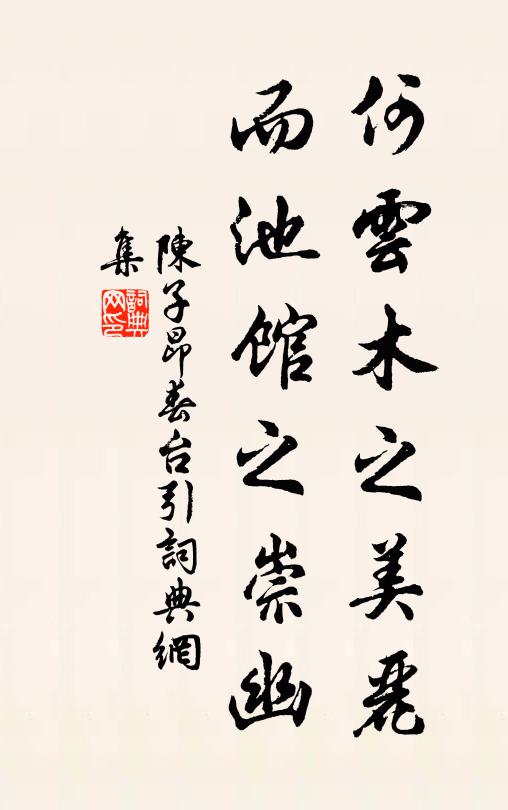 何雲木之美麗
而池館之崇幽
陳子昂春台引詞典網
集
詞典
网印